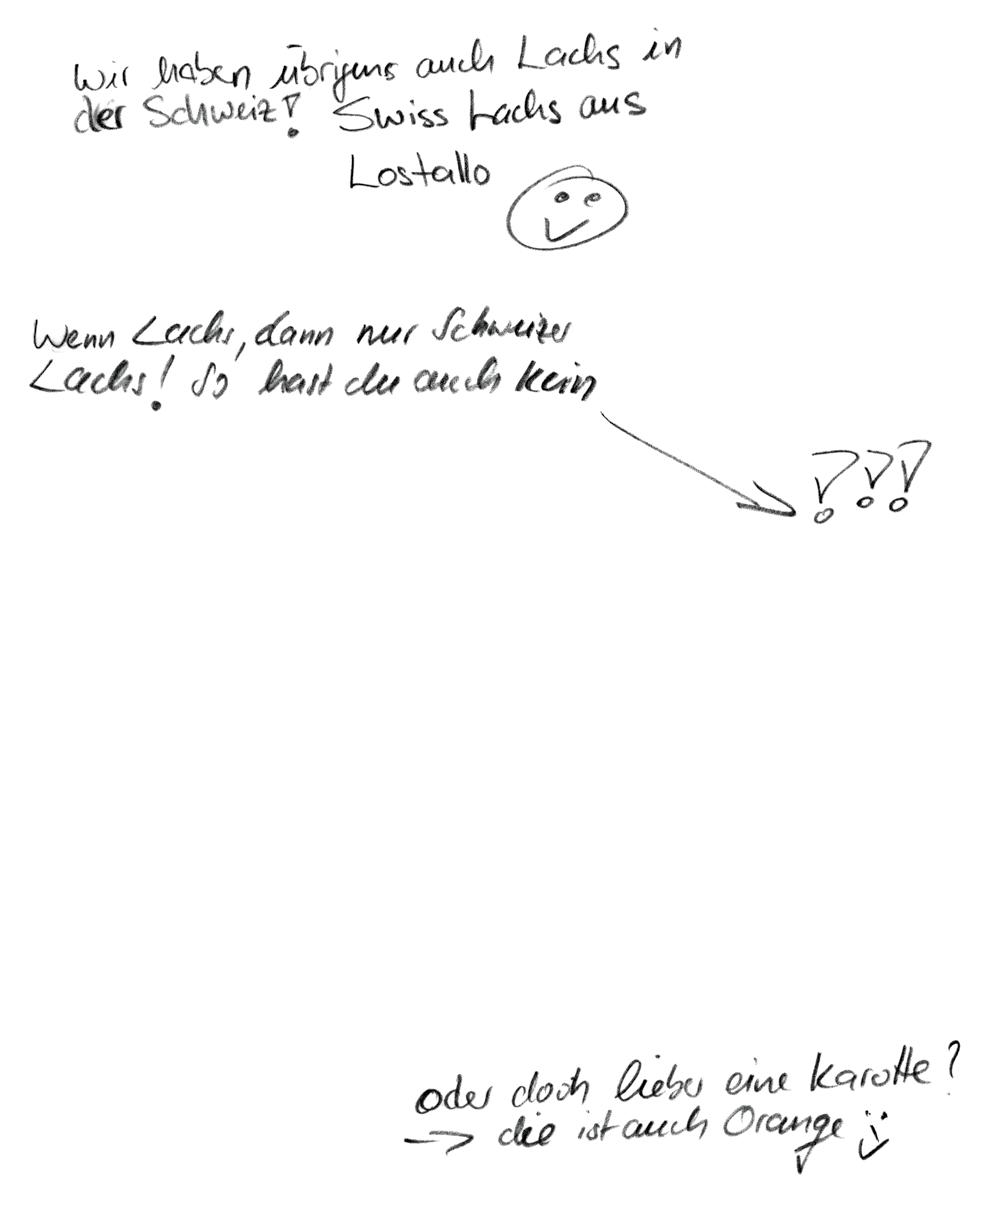 Wir haben übrigens auch Lachs in
der Schweiz! Swiss Lachs aus
Lostallo
Wenn Lachs, dann nur Schweizer
Lachs! So hast du auch kein
!!!
oder doch lieber eine Karotte?
→ die ist auch Orange